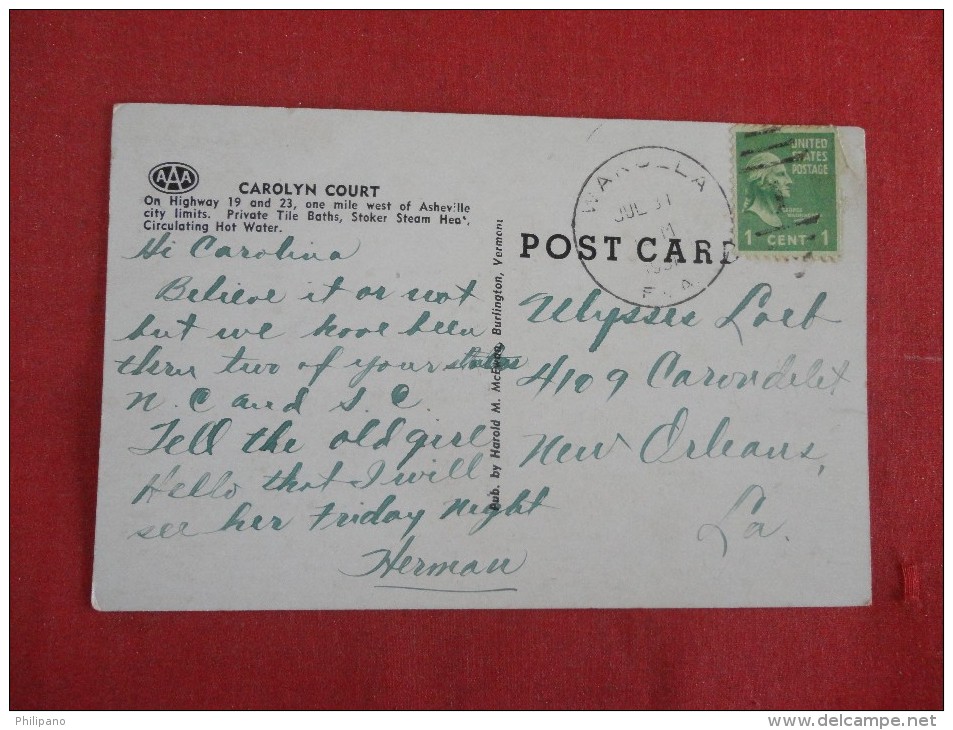 AAA
CAROLYN COURT
On Highway 19 and 23, one mile west of Asheville
city limits. Private Tile Baths, Stoker Steam Heat,
Circulating Hot Water.
Hi Carolina
Believe it or not
but we have been
thru two of your states
N. C and S. C.
Tell the old girl
Hello that I will
see her Friday Night
Herman
Pub. by Harold M. McEwan, Burlington, Vermont
POST CARD
WAKULLA
JUL 31
FLA
UNITED
STATES
POSTAGE
GEORGE
WASHINGTON
1 CENT 1
Ulysses Loeb
4109 Carondelet
New Orleans,
La.
Philipano
delcampe.net